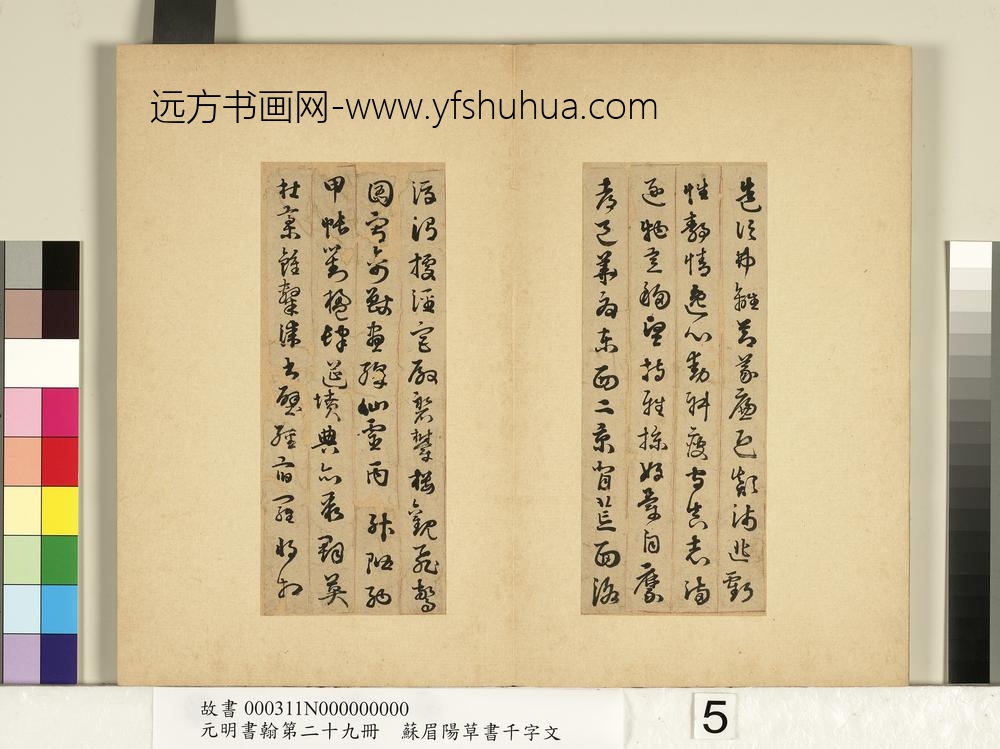 远方书画网-www.yfshuhua.com
造次弗離節義廉退顛沛匪虧
性靜情逸心動神疲守真志滿
逐物意移堅持雅操好爵自縻
都邑華夏東西二京背芒面洛
浮渭據涇宮殿盤鬱樓觀飛驚
圖寫禽獸畫綵仙靈丙
甲帳對楹肆筵墳典亦聚群英
杜稾鍾隸漆書壁經府羅將相
故書 000311N000000000
元明書翰第二十九冊 蘇眉陽草書千字文
5